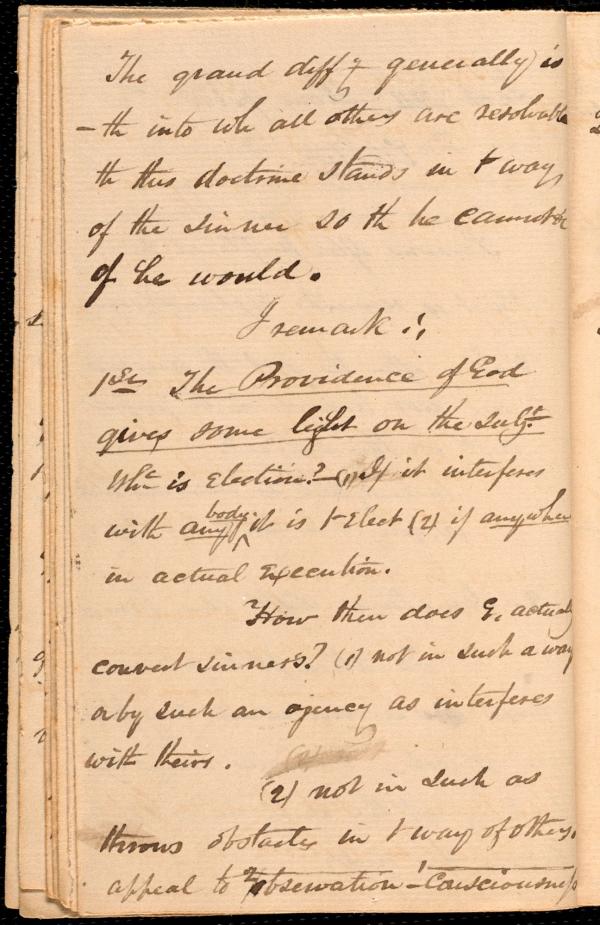 The grand diffy generally is
– th into wh all others are resolvable
th this doctrine stands in t way
of the sinner so th he cannot
if he would.
I remark :,
1st The Providence of God
gives some light on the subjt
Wht is Election? – (1) If it interferes
with any body it is t Elect (2) if anywhere
in actual Execution.
How then does G, actually
convert sinners? (1) not in such a way
or by such an agency as interferes
with theirs.
(2) not in such as
throws obstacles in t way of others,
appeal to observation – Consciousness